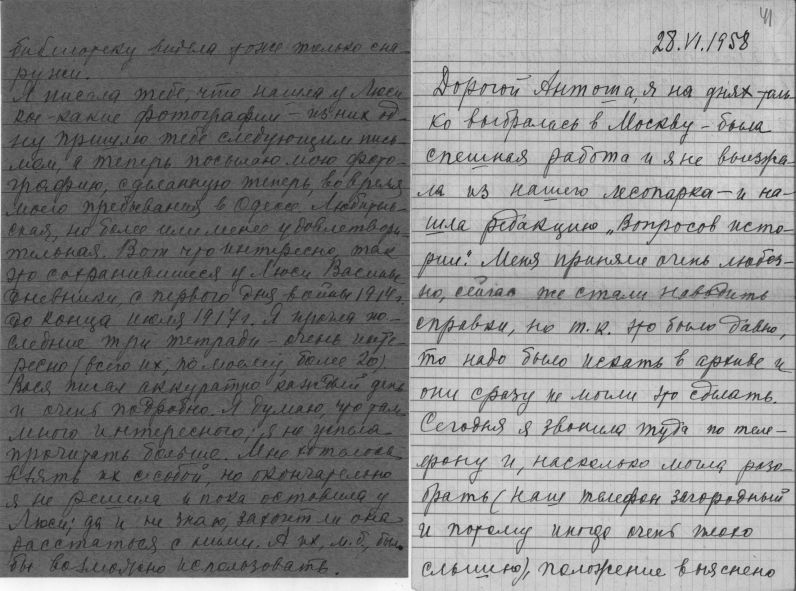 библиотеку видела тоже только сна-
ружи.
Я писала тебе, что нашла у Люси
кое-какие фотографии – из них од-
ну пришлю тебе следующим пись-
мом, а теперь посылаю мою фото-
графию, сделанную теперь, во время
моего пребывания в Одессе. Любитель-
ская, но более или менее удовлетвори-
тельная. Вот что интересно, так
это сохранившиеся у Люси Васины
дневники, с первого дня войны 1914 г.
до конца июля 1917 г. Я прочла по-
следние три тетради – очень инте-
ресно (всего их, по-моему, более 20).
Вася писал аккуратно каждый день
и очень подробно. Я думаю, что там
много интересного, я не успела
прочитать больше. Мне хотелось
взять их с собой, но окончательно
я не решила и пока оставила у
Люси; да и не знаю, захочет ли она
расстаться с ними. А их, м.б., был.
бы возможно использовать.
41
28.VI.1958
Дорогой Антоша, я на днях толь-
ко выбралась в Москву – была
спешная работа и я не выезжа-
ла из нашего лесопарка – и на-
шла редакцию „Вопросов исто-
рии". Меня приняли очень любез-
но, сейчас же стали наводить
справки, но т.к. это было давно,
то надо было искать в архиве и
они сразу не могли это сделать.
Сегодня я звонила туда по теле-
фону и, насколько могла разо-
брать (наш телефон загородный
и потому иногда очень плохо
слышно), положение выяснено